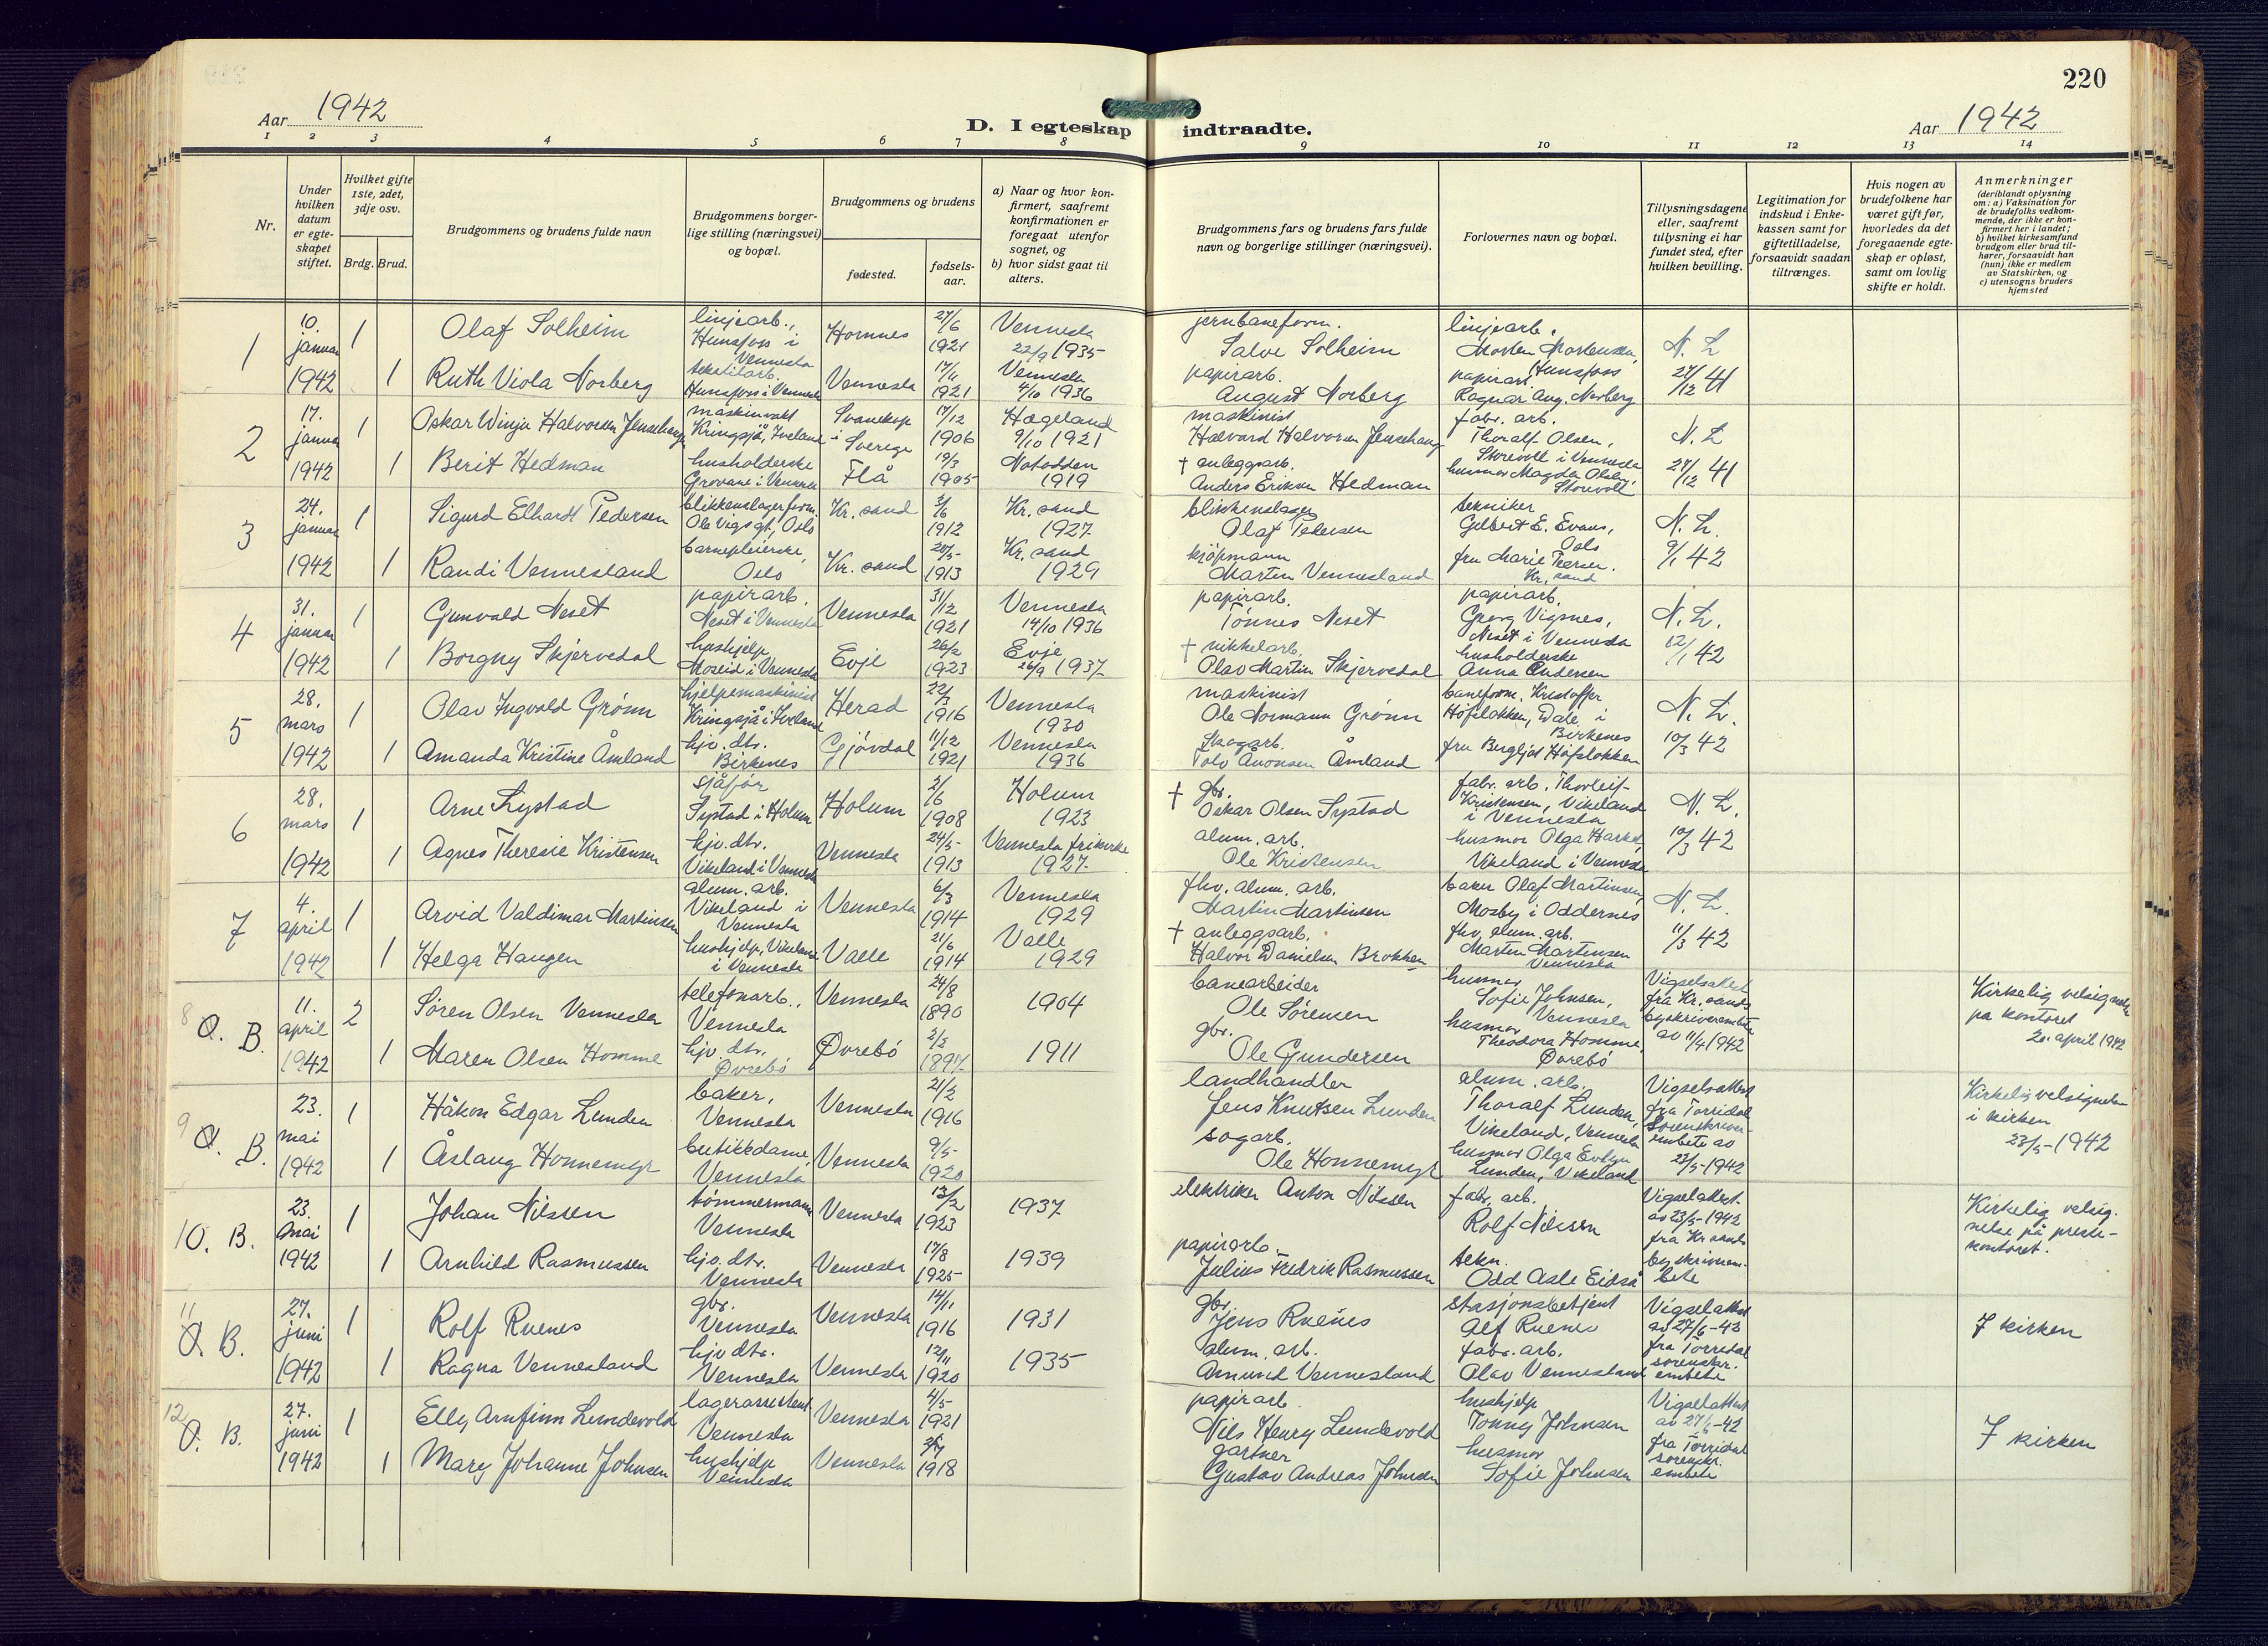 220
Aar 1942
D. I egteskap indtraadte.
Aar 1942
1 2 3 4 5 6 7 8 9 10 11 12 13 14
Nr.
Under hvilken datum er egteskapet stiftet.
Hvilket gifte 1ste, 2det, 3dje osv.
Brdg. Brud.
Brudgommens og brudens fulde navn
Brudgommens borgerlige stilling (næringsvei) og bopæl.
Brudgommens og brudens
fødested.
fødselsaar.
a) Naar og hvor konfirmert, saafremt konfirmationen er foregaat utenfor sognet, og
b) hvor sidst gaat til alters.
Brudgommens fars og brudens fars fulde navn og borgerlige stillinger (næringsvei).
Forlovernes navn og bopæl.
Tillysningsdagene eller, saafremt tillysning ei har fundet sted, efter hvilken bevilling.
Legitimation for indskud i Enkekassen samt for giftetilladelse, forsaavidt saadan tiltrænges.
Hvis nogen av brudefolkene har været gift før, hvorledes da det foregaaende egteskap er opløst, samt om lovlig skifte er holdt.
Anmerkninger
(deriblandt oplysning om: a) Vaksination for de brudefolks vedkommende, der ikke er konfirmert her i landet; b) hvilket kirkesamfund brudgom eller brud tilhører, forsaavidt han (hun) ikke er medlem av Statskirken, og c) utensogns bruders hjemsted
1 10. januar 1942 1 Olaf Solheim linjearb., Hunsfoss i Vennesla Hornnes 27/6 1921 Vennesla 22/9 1935 jernbaneform. Salve Solheim linjearb. Morten Mortensen, Hunsfoss N. L. 27/12 41
1 Ruth Viola Norberg tekstilarb. Hunsfoss i Vennesla Vennesla 17/11 1921 Vennesla 4/10 1936 papirarb. August Norberg papirarb. Ragnar Aug. Norberg
2 17. januar 1942 1 Oskar Winju Halvorsen Jensehaug maskinvakt Kringsjå, Iveland Svanskop i Sverige 17/12 1906 Hægeland 9/10 1921 maskinist Halvard Halvorsen Jensehaug fabr. arb. Thoralf Olsen, Storevoll i Vennesla N. L. 27/12 41
1 Berit Hedman husholderske Grovane i Vennesla Flå 19/3 1905 Notodden 1919 † anleggsarb. Anders Eriksen Hedman husmor Magda Olsen, Storevoll
3 24. januar 1942 1 Sigurd Elhardt Pedersen blikkenslagerform. Ole Vigs gt, Oslo Kr. sand 3/6 1912 Kr. sand 1927 blikkenslager Olaf Pedersen tekniker Gelbert E. Evans, Oslo N. L. 9/1 42
1 Randi Vennesland barnepleierske, Oslo Kr. sand 20/5 1913 Kr. sand 1929 kjøpmann Martin Vennesland fru Marie Thersen. Kr. sand
4 31. januar 1942 1 Gunvald Neset papirarb. Neset i Vennesla Vennesla 31/12 1921 Vennesla 14/10 1936 papirarb. Tønnes Neset papirarb. Georg Vigmes, Neset i Vennesla N. L. 12/1 42
1 Borgny Skjervedal hushjelp Moseid i Vennesla Evje 26/2 1923 Evje 26/9 1937 † nikkelarb. Olav Martin Skjervedal husholderske Anna Andersen
5 28. mars 1942 1 Olav Ingvald Grønn hjelpemaskinist Kringsjå i Iveland Herad 22/7 1916 Vennesla 1930 maskinist Ole Normann Grønn baneform. Kristoffer Høfslokken, Dale, i Birkenes N. L. 10/3 42
1 Amanda Kristine Åmland hjv. dtr. Birkenes Gjøvdal 11/12 1921 Vennesla 1936 Skogarb. Tolv Aronsen Åmland fru Bergljot Høfslokken
6 28. mars 1942 1 Arne Lystad sjåfør Lystad i Holum Holum 2/6 1908 Holum 1923 † gbr. Oskar Olsen Lystad fabr. arb. Thorleif Kristensen, Vikeland i Vennesla N. L. 10/3 42
1 Agnes Theresie Kristensen hjv. dtr. Vikeland i Vennesla Vennesla 24/5 1913 Vennesla frikirke 1927 alum. arb. Ole Kristensen husmor Olga Harket, Vikeland i Vennesla
7 4. april 1942 1 Arvid Valdimar Martinsen alum. arb. Vikeland i Vennesla Vennesla 6/3 1914 Vennesla 1929 fhv. alum. arb. Martin Martinsen baker Olaf Martinsen, Mosby i Oddernes N. L. 11/3 42
1 Helga Haugen hushjelp, Vikeland i Vennesla Valle 21/6 1914 Valle 1929 † anleggsarb. Halvor Danielsen Brokken fhv. alum. arb. Martin Martinsen Vennesla
8 O. B. 11. april 1942 2 Søren Olsen Vennesla telefonarb., Vennesla Vennesla 24/8 1890 1904 banearbeider Ole Sørensen husmor Sofie Johnsen, Vennesla Vigselsattest fra Kr. sands byskriverembete av 11/4 1942 Kirkelig velsignelse pa kontoret 20. april 1942
1 Maren Olsen Homme hjv. dtr. Øvrebø Øvrebø 2/2 1897 1911 gbr. Ole Gundersen husmor Theodora Homme, Øvrebø
9 O. B. 23. mai 1942 1 Håkon Edgar Lunden baker, Vennesla Vennesla 21/2 1916 landhandler Jens Knutsen Lunden alum. arb. Thoralf Lunden, Vikeland, Vennesla Vigselsattest fra Torridal Sorenskriverembete av 23/5-1942 Kirkelig velsignelse i kirken 23/5-1942
1 Åslaug Honnemyr butikkdame, Vennesla Vennesla 9/5 1920 sagarb. Ole Honnemyr husmor Olga Evelyn Lunden, Vikeland
10. B. 23. mai 1942 1 Johan Nilssen tømmermann Vennesla Vennesla 13/2 1923 1937 elektriker Anton Nilssen fabr. arb. Rolf Nilssen Vigselattest av 23/5-1942 fra Kr. sands byskriverembete Kirkelig velsignelse på prestekontoret.
1 Arnhild Rasmussen hjv. dtr. Vennesla Vennesla 17/8 1925 1939 papirarb. Julius Fredrik Rasmussen tekn. Odd Asle Eidså
11 O. B. 27. juni 1942 1 Rolf Ruenes gbr. Vennesla Vennesla 14/11 1916 1931 gbr. Jens Ruenes stasjonsbetjent Alf Ruenes Vigselattest av 27/6-42 fra Torridal sorenskr. embete I kirken
1 Ragna Vennesland hjv dtr. Vennesla Vennesla 12/11 1920 1935 alum. arb. Amund Vennesland fabr. arb. Olav Vennesland
12 O. B. 27. juni 1942 1 Elly Arnfinn Lundevold lagerassistent Vennesla Vennesla 4/5 1921 papirarb. Nils Henry Lundevold hushjelp Tonny Johnsen Vigselattest av 27/6-42 fra Torridal sorenskr. embete I kirken
1 Mary Johanne Johnsen hushjelp Vennesla Vennesla 1918 gartner Gustav Andreas Johnsen husmor Sofie Johnsen